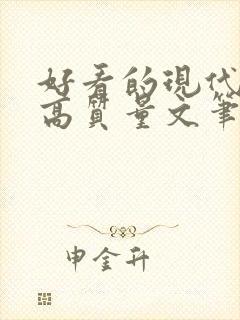 好看的现代
高质量文笔
申金升